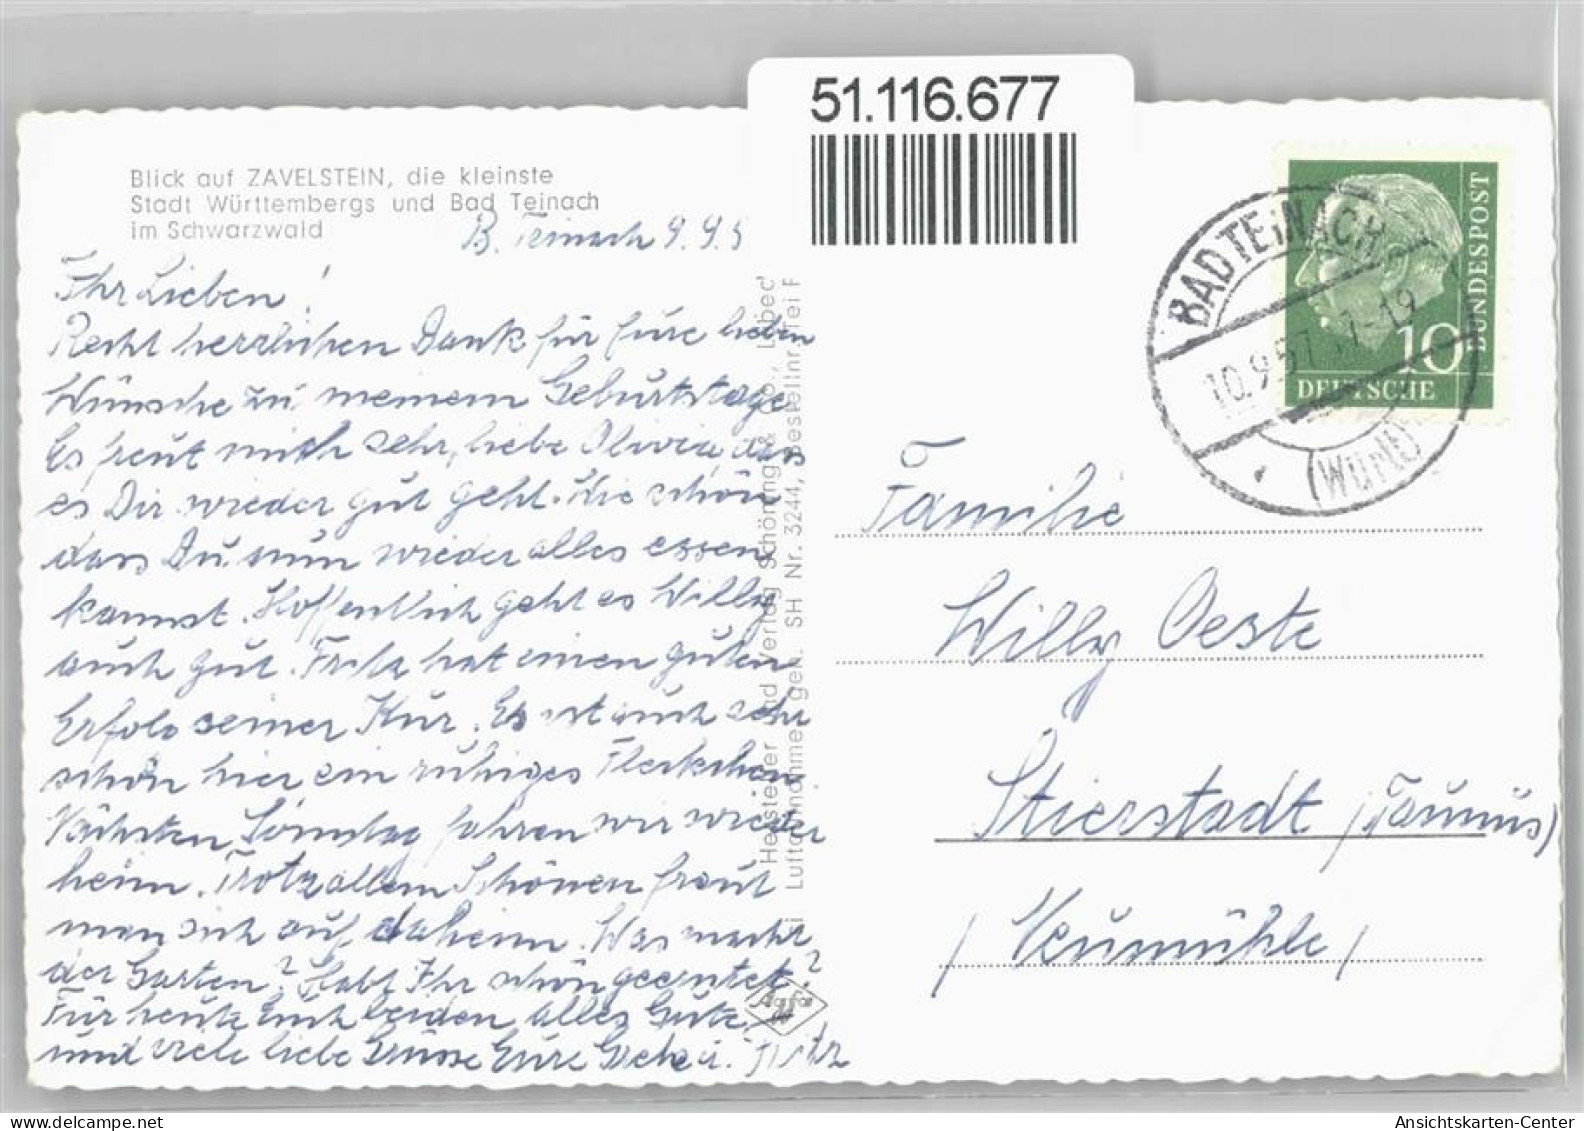 51.116.677
Blick auf ZAVELSTEIN, die kleinste
Stadt Württembergs und Bad Teinach
im Schwarzwald
B. Teinach 9.9.5
Ihr Lieben!
Recht herzlichen Dank für Eure lieben
Wünsche zu meinem Geburtstage
Es freut mich sehr, liebe Olivia, dass
es Dir wieder gut geht. Wie schön
dass Du nun wieder alles essen
kannst. Hoffentlich geht es Willy
auch gut. Fritz hat einen guten
Erfolg seiner Kur. Es ist auch sehr
schön hier ein ruhiges Fleckchen
Nächsten Sonntag fahren wir wieder
heim. Trotz allem Schönen freut
man sich auf daheim. Was macht
der Garten? Habt Ihr schön geerntet?
Für heute Euch beiden alles Gute
und viele liebe Grüsse Eure u. Fritz
Hersteller und Verlag Schöning & Co., Lübeck
Luftaufnahme gen. SH Nr. 3244, Bestellnr. Tei F
Agfa
BAD TEINACH
10.9.57.17-19
(WÜRTT)
BUNDESPOST
10
DEUTSCHE
Familie
Willy Oeste
Stierstadt (Taunus)
/ Neumühle /
Ansichtskarten-Center
delcampe.net